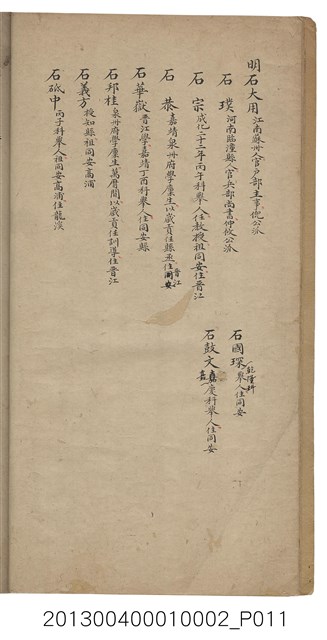 明石大用 江南蘇州人官戶部主事㑆公派
石璞 河南臨漳縣官兵部尚書仲攸公派
石宗 成化二十二年丙午科舉人任教授祖同安住晉江
石恭 嘉靖泉州府學廩生以歲貢任縣丞住晉江同安
石華嶽 晉江學嘉靖丁酉科舉人住同安縣
石邦桂 泉州府學廩生萬曆間以歲貢任訓導住晉江
石義方 授知縣祖同安高浦
石砥中 丙子科舉人祖同安高浦住龍溪
石國琛 乾隆科舉人住同安
石鼓文 嘉慶科舉人住同安
201300400010002_P011